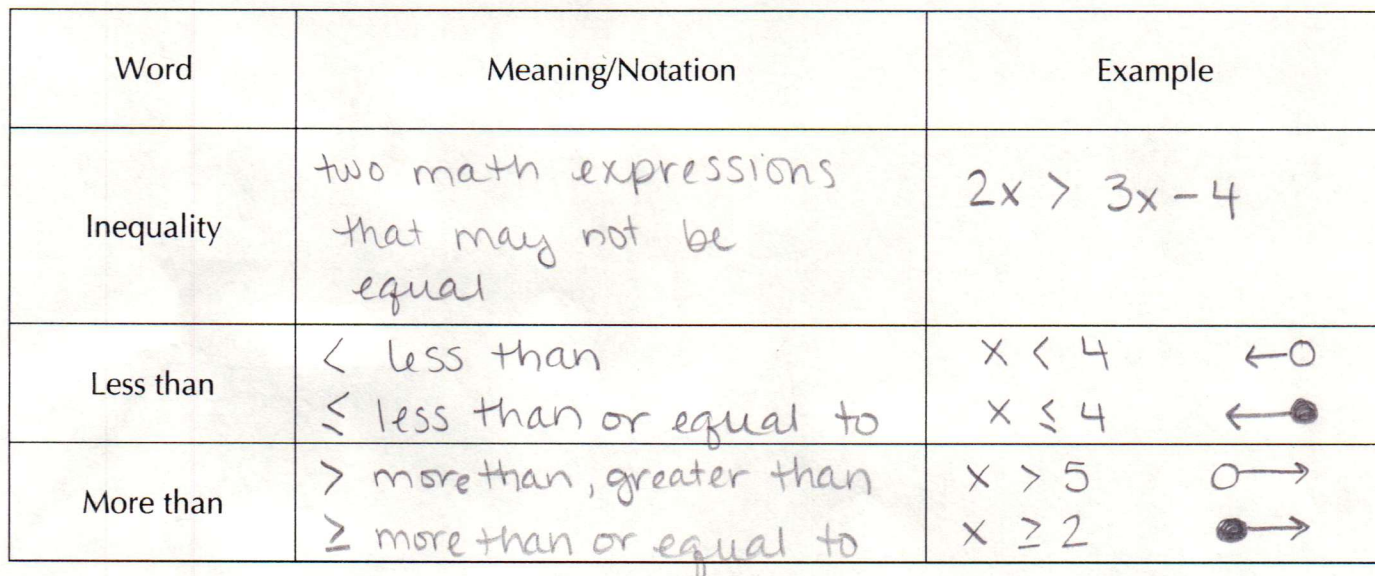 Word Meaning/Notation Example
Inequality
two math expressions
that may not be
equal
2x > 3x - 4
Less than
< less than
≤ less than or equal to
x < 4
x ≤ 4
More than
> more than, greater than
≥ more than or equal to
x > 5
x ≥ 2